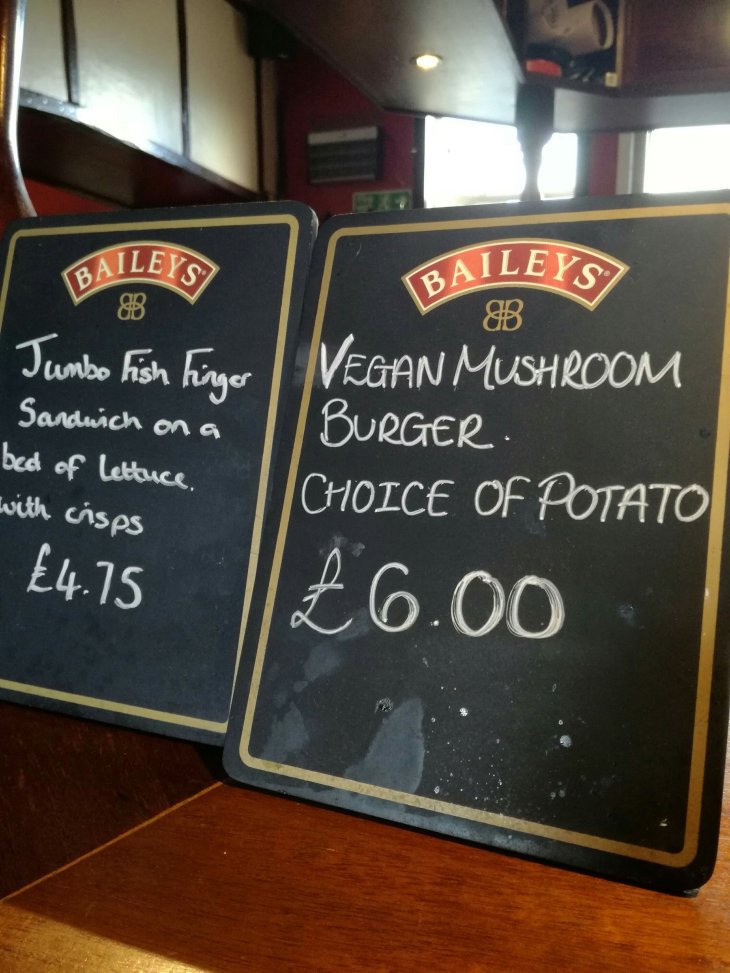 BAILEYS
Jumbo Fish Finger
Sandwich on a
bed of lettuce.
with crisps
£4.75
BAILEYS
VEGAN MUSHROOM
BURGER.
CHOICE OF POTATO
£6.00